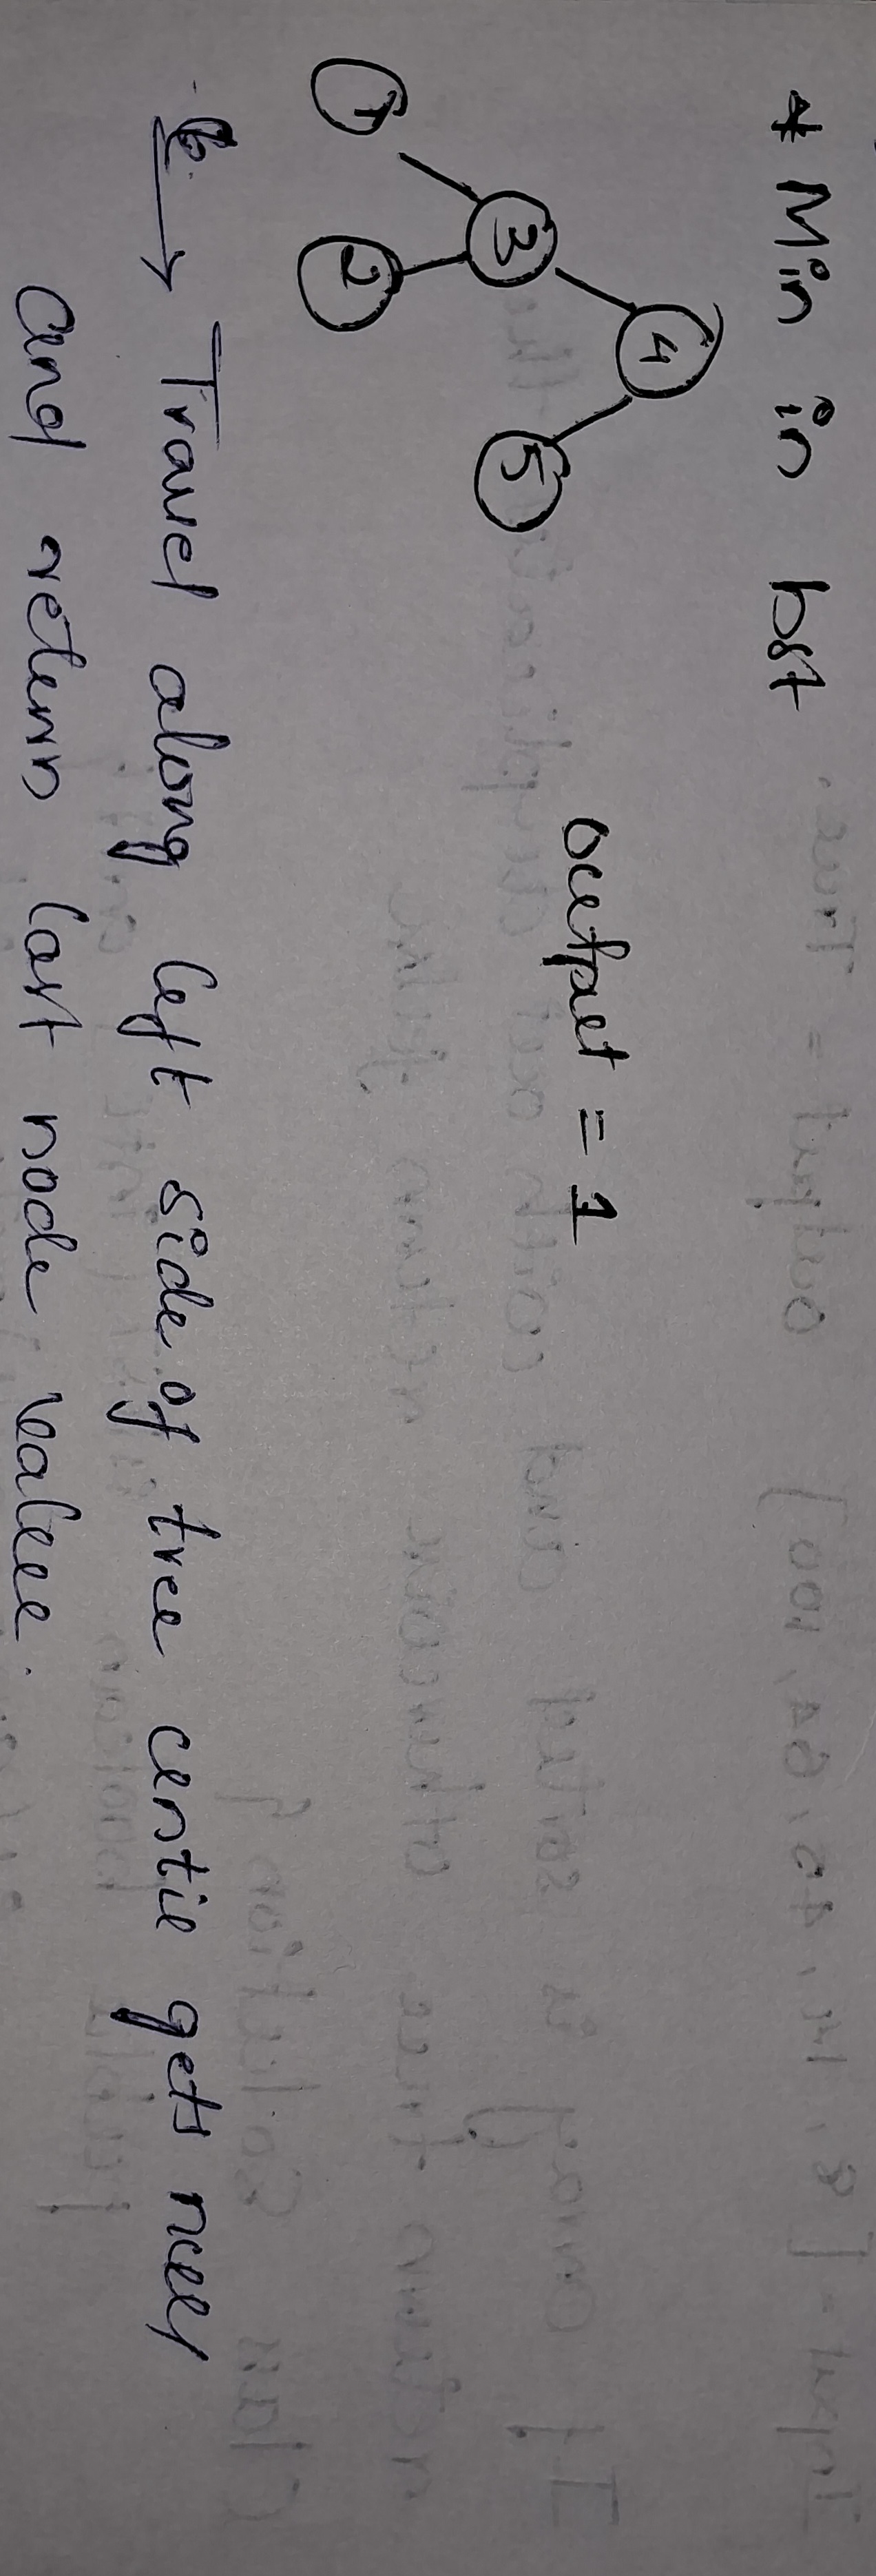 * Min in bst
4
3
5
output = 1
1
2
→ Travel along left side of tree until gets null
and return last node value.